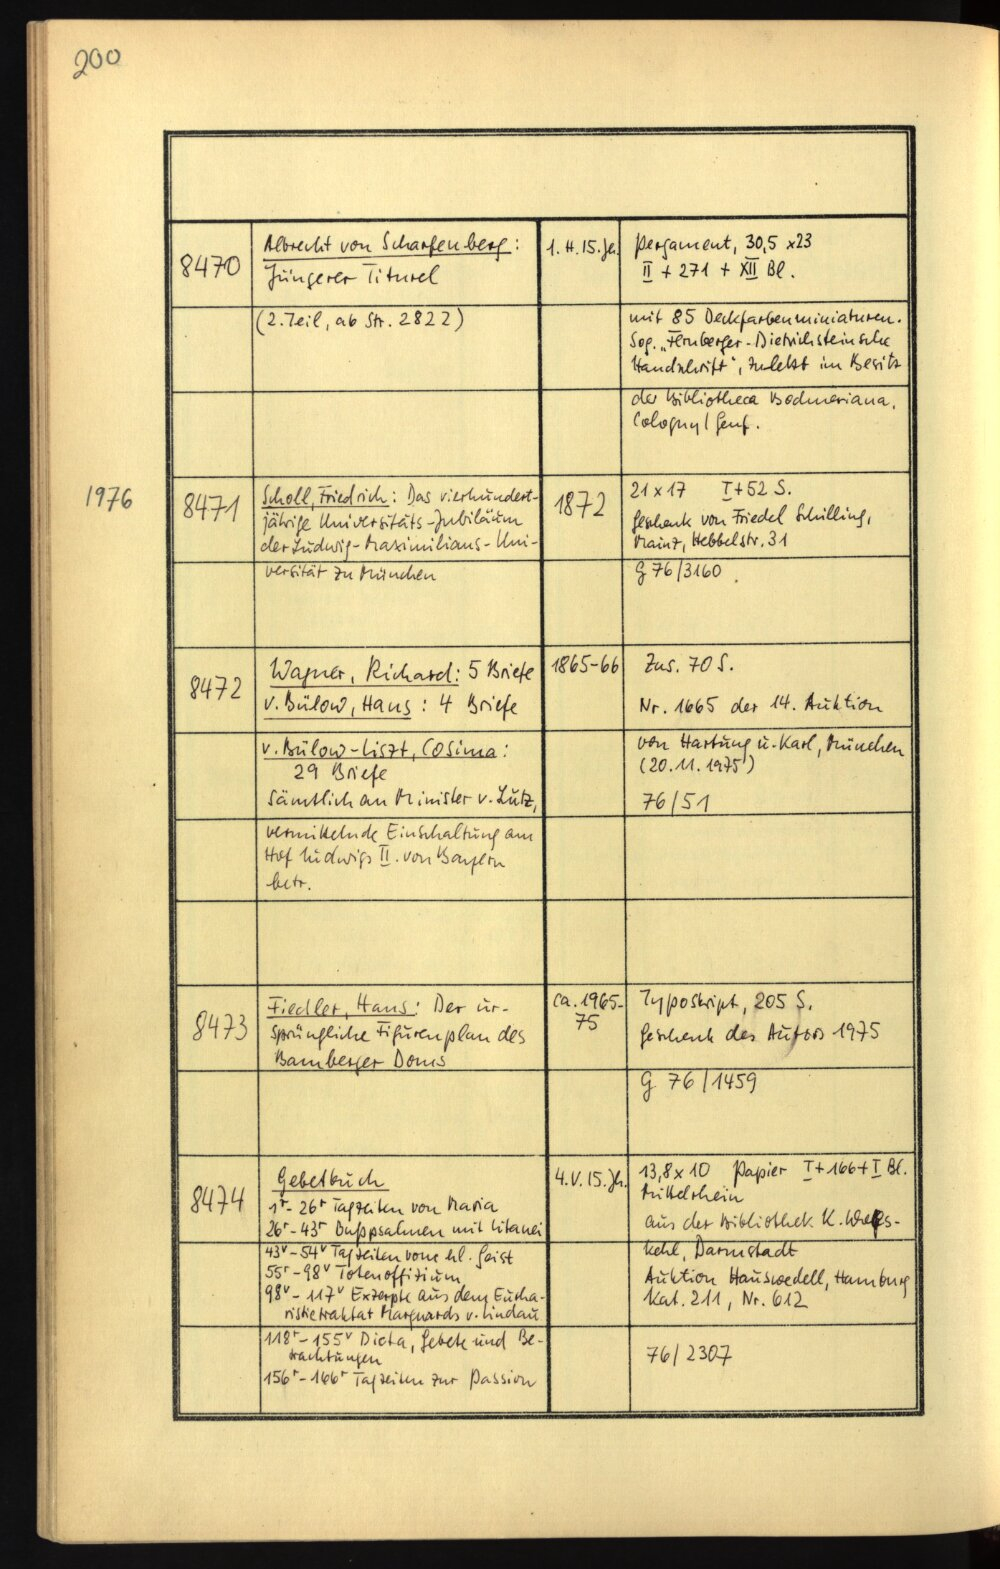 200
8470
Albrecht von Scharfenberg:
Jüngerer Titurel
1. H. 15. Jh.
Pergament, 30,5 x 23
II + 271 + XII Bl.
(2. Teil, ab Str. 2822)
mit 85 Deckfarbenminiaturen.
Sog. „Fernberger-Dietrichsteinsche
Handschrift", zuletzt im Besitz
der Bibliotheca Bodmeriana,
Cologny / Genf.
1976
8471
Scholl, Friedrich: Das vierhundert-
jährige Universitäts-Jubiläum
der Ludwig-Maximilians-Uni-
versität zu München
1872
21 x 17 I + 52 S.
Geschenk von Friedel Schilling,
Mainz, Hebbelstr. 31
G 76/3160
8472
Wagner, Richard: 5 Briefe
v. Bülow, Hans: 4 Briefe
1865-66
Zus. 70 S.
Nr. 1665 der 14. Auktion
v. Bülow-Liszt, Cosima:
29 Briefe
Sämtlich an Minister v. Lutz,
von Hartung u. Karl, München
(20.11.1975)
76/51
vermittelnde Einschaltung am
Hof Ludwigs II. von Bayern
betr.
8473
Fiedler, Hans: Der ur-
sprüngliche Figurenplan des
Bamberger Doms
ca. 1965-
75
Typoskript, 205 S.
Geschenk des Autors 1975
G 76/1459
8474
Gebetbuch
1r - 26r Tagzeiten von Maria
26r - 43r Bußpsalmen mit Litanei
43v - 54v Tagzeiten vom hl. Geist
55r - 98v Totenoffizium
98v - 117v Exzerpte aus dem Eucha-
ristietraktat Marquards v. Lindau
118r - 155v Dicta, Gebete und Be-
trachtungen
156r - 166r Tagzeiten zur Passion
4. V. 15. Jh.
13,8 x 10 Papier I + 166 + I Bl.
Mittelrhein
aus der Bibliothek K. Wolfs-
kehl, Darmstadt
Auktion Hauswedell, Hamburg
Kat. 211, Nr. 612
76/2307